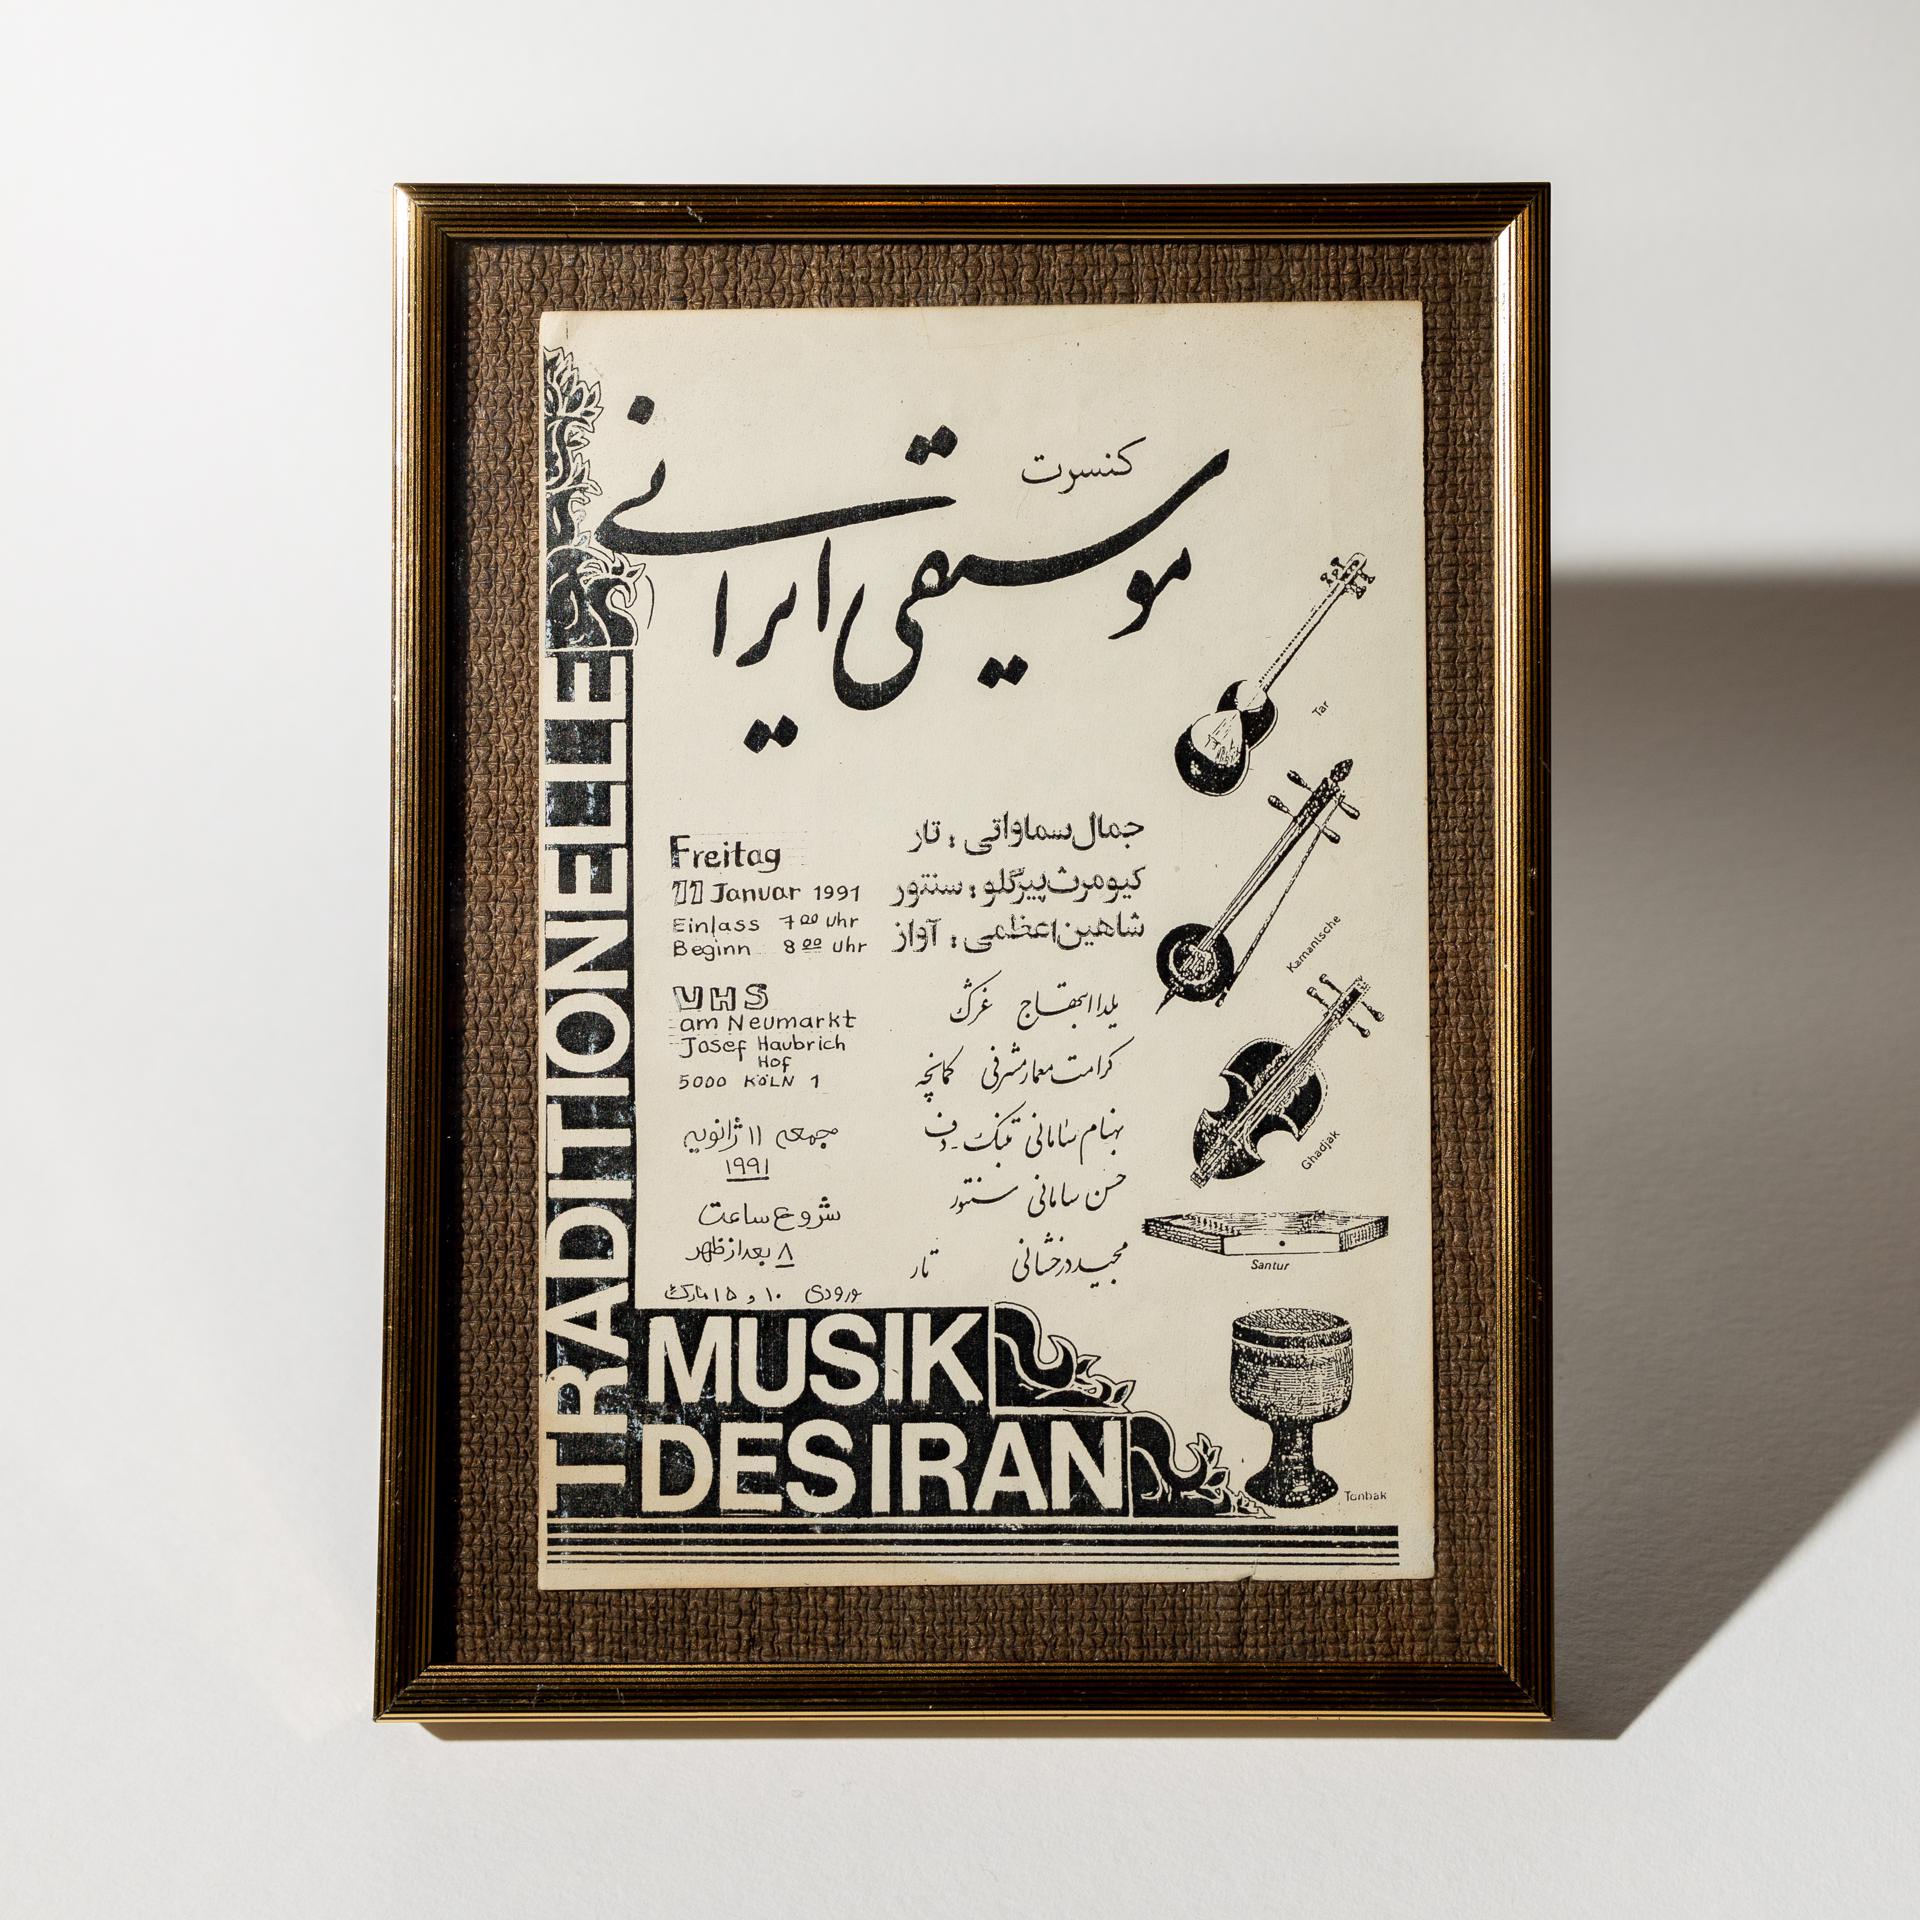 کنسرت
موسیقی ایرانی
Tar
Kamantsche
Ghadjak
Santur
Tonbak
Freitag
11 Januar 1991
Einlass 7⁰⁰ Uhr
Beginn 8⁰⁰ Uhr
VHS
am Neumarkt
Josef Haubrich
Hof
5000 KÖLN 1
جمعه ۱۱ ژانویه
۱۹۹۱
شروع ساعت
۸ بعدازظهر
ورودی ۱۰ و ۱۵ مارک
جمال سماواتی : تار
کیومرث پیرگلو : سنتور
شاهین اعظمی : آواز
یلدا ابتهاج غژک
کرامت معمارمشرفی کمانچه
بهنام سامانی تنبک - دف
حسن سامانی سنتور
مجید درخشانی تار
TRADITIONELLE
MUSIK
DES IRAN